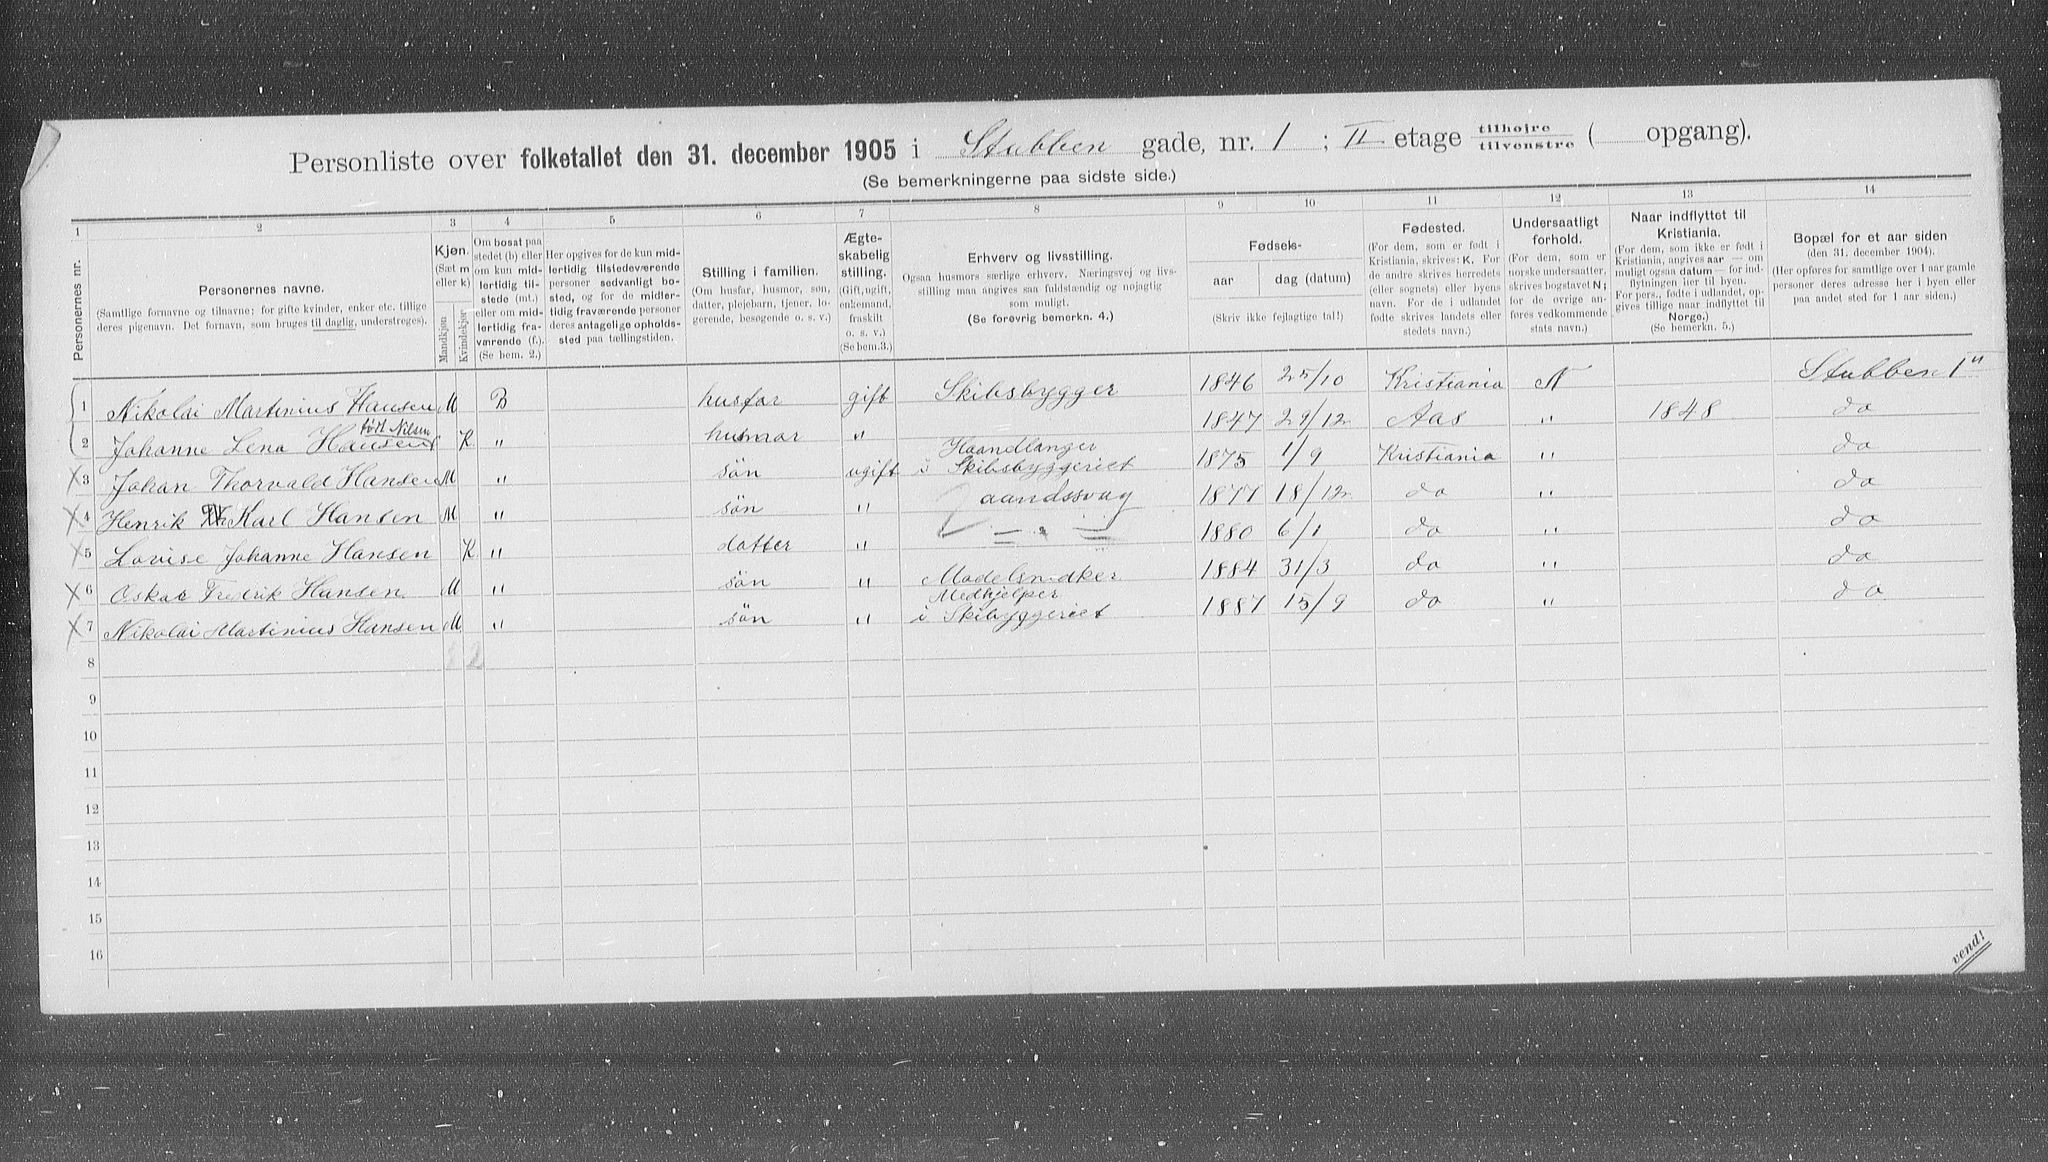 Personliste over folketallet den 31. december 1905 i Stubben gade, nr. 1 ; II etage tilhøjre / tilvenstre ( opgang).
(Se bemerkningerne paa sidste side.)
1 2 3 4 5 6 7 8 9 10 11 12 13 14
Personernes nr.
Personernes navne.
(Samtlige fornavne og tilnavne; for gifte kvinder, enker etc. tillige deres pigenavn. Det fornavn, som bruges til daglig, understreges).
Kjøn.
(Sæt m eller k)
Mandkjøn
Kvindekjøn
Om bosat paa stedet (b) eller om kun midlertidig tilstede (mt.) eller om midlertidig fraværende (f.). (Se bem. 2.)
Her opgives for de kun midlertidig tilstedeværende personer sedvanligt bosted, og for de midlertidig fraværende personer deres antagelige opholdssted paa tællingstiden.
Stilling i familien.
(Om husfar, husmor, søn, datter, plejebarn, tjener, logerende, besøgende o. s. v.)
Ægteskabelig stilling.
(Gift, ugift, enkemand, fraskilt o. s. v.)
(Se bem. 3.)
Erhverv og livsstilling.
Ogsaa husmors særlige erhverv. Næringsvej og livsstilling maa angives saa fuldstændig og nøjagtig som muligt.
(Se forøvrig bemerkn. 4.)
Fødsels-
aar dag (datum)
(Skriv ikke fejlagtige tal!)
Fødested.
(For dem, som er født i Kristiania, skrives: K. For de andre skrives herredets (eller sognets) eller byens navn. For de i udlandet fødte skrives landets eller stedets navn.)
Undersaatligt forhold.
(For dem, som er norske undersaatter, skrives bogstavet N; for de øvrige anføres vedkommende stats navn.)
Naar indflyttet til Kristiania.
(For dem, som ikke er født i Kristiania, angives aar — om muligt ogsaa datum — for indflytningen her til byen. For pers., fødte i udlandet, opgives tillige naar indflyttet til Norge.)
(Se bemerkn. 5.)
Bopæl for et aar siden
(den 31. december 1904).
(Her opføres for samtlige over 1 aar gamle personer deres adresse her i byen eller paa andet sted for 1 aar siden.)
1 Nikolai Martinius Hansen M B husfar gift Skibsbygger 1846 25/10 Kristiania N Stubben 1
født Nilsen
2 Johanne Lena Hansen K " husmor " 1847 29/12 Aas " 1848 do
Haandlanger
3 Johan Thorvald Hansen M " søn ugift i Skibsbyggeriet 1875 1/9 Kristiania " do
4 Henrik Karl Hansen M " søn " aandssvag 1877 18/12 do " do
5 Lovise Johanne Hansen K " datter " 1880 6/1 do " do
6 Oskar Fredrik Hansen M " søn " Modelsnedker 1884 31/3 do " do
Medhjelper
7 Nikolai Martinius Hansen M " søn " i Skibyggeriet 1887 15/9 do " do
8 2
9
10
11
12
13
14
15
16
vend!